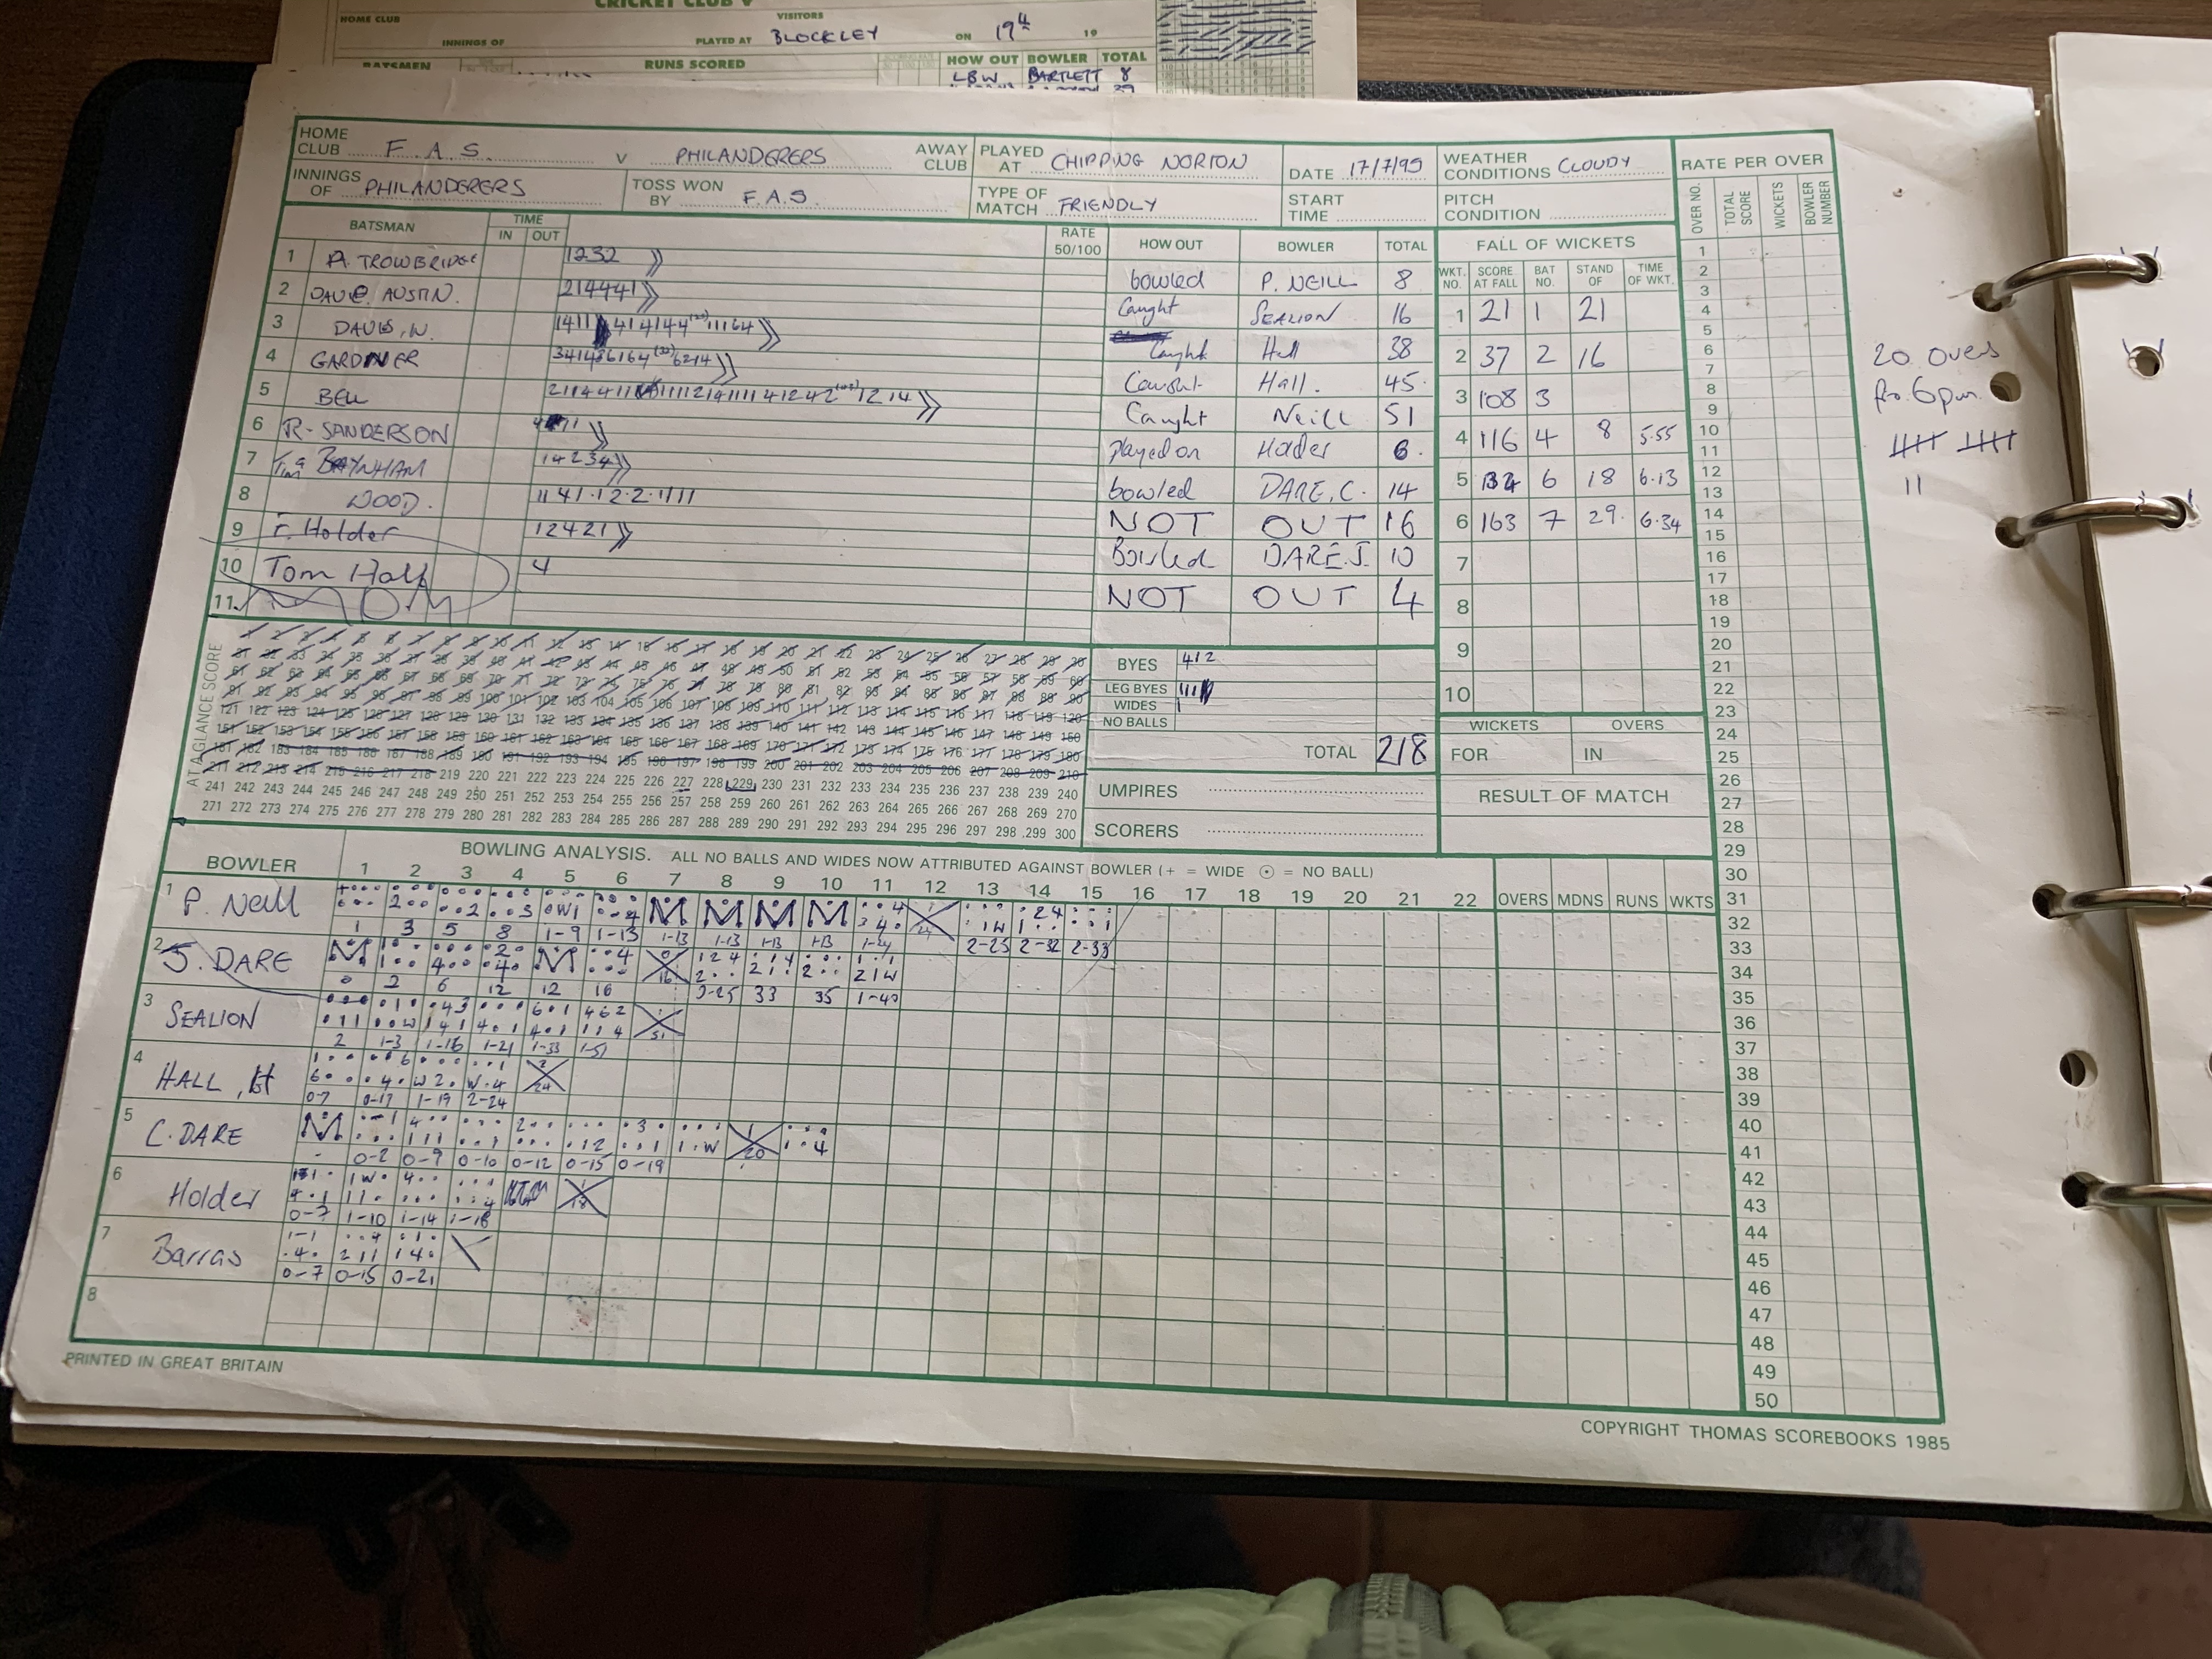 CRICKET CLUB V
HOME CLUB VISITORS
INNINGS OF PLAYED AT BLOCKLEY ON 19th 19
BATSMEN RUNS SCORED HOW OUT BOWLER TOTAL
LBW BARTLETT 8
29
HOME CLUB F.A.S. V PHILANDERERS AWAY CLUB PLAYED AT CHIPPING NORTON DATE 17/7/95 WEATHER CONDITIONS CLOUDY RATE PER OVER
INNINGS OF PHILANDERERS TOSS WON BY F.A.S. TYPE OF MATCH FRIENDLY START TIME PITCH CONDITION
OVER NO. TOTAL SCORE WICKETS BOWLER NUMBER
BATSMAN TIME IN OUT RATE 50/100 HOW OUT BOWLER TOTAL FALL OF WICKETS
WKT. NO. SCORE AT FALL BAT NO. STAND OF TIME OF WKT.
1 A. TROWBRIDGE 1232 bowled P. NEILL 8
2 DAVE AUSTIN. 214441 Caught SEALION 16
3 DAVIS, N. Caught Hall 38
4 GARDINER Caught Hall. 45
5 BELL Caught Neill 51
6 R. SANDERSON played on Holder 6.
7 Tim BAYNHAM 14234 bowled DARE, C. 14
8 WOOD. 1141.12.2.1111 NOT OUT 16
9 F. Holder 12421 Bowled DARE.J. 10
10 Tom Hall 4 NOT OUT 4
11
1 21 1 21
2 37 2 16
3 108 3
4 116 4 8 5.55
5 134 6 18 6.13
6 163 7 29. 6.34
7
8
9
10
20 overs
fro. 6pm.
BYES 412
LEG BYES
WIDES 1
NO BALLS
TOTAL 218
WICKETS OVERS
FOR IN
UMPIRES
SCORERS
RESULT OF MATCH
AT A GLANCE SCORE
1 2 3 4 5 6 7 8 9 10 11 12 13 14 15 16 17 18 19 20 21 22 23 24 25 26 27 28 29 30
31 32 33 34 35 36 37 38 39 40 41 42 43 44 45 46 47 48 49 50 51 52 53 54 55 56 57 58 59 60
61 62 63 64 65 66 67 68 69 70 71 72 73 74 75 76 77 78 79 80 81 82 83 84 85 86 87 88 89 90
91 92 93 94 95 96 97 98 99 100 101 102 103 104 105 106 107 108 109 110 111 112 113 114 115 116 117 118 119 120
121 122 123 124 125 126 127 128 129 130 131 132 133 134 135 136 137 138 139 140 141 142 143 144 145 146 147 148 149 150
151 152 153 154 155 156 157 158 159 160 161 162 163 164 165 166 167 168 169 170 171 172 173 174 175 176 177 178 179 180
181 182 183 184 185 186 187 188 189 190 191 192 193 194 195 196 197 198 199 200 201 202 203 204 205 206 207 208 209 210
211 212 213 214 215 216 217 218 219 220 221 222 223 224 225 226 227 228 229 230 231 232 233 234 235 236 237 238 239 240
241 242 243 244 245 246 247 248 249 250 251 252 253 254 255 256 257 258 259 260 261 262 263 264 265 266 267 268 269 270
271 272 273 274 275 276 277 278 279 280 281 282 283 284 285 286 287 288 289 290 291 292 293 294 295 296 297 298 299 300
BOWLER BOWLING ANALYSIS. ALL NO BALLS AND WIDES NOW ATTRIBUTED AGAINST BOWLER (+ = WIDE ⊙ = NO BALL)
1 2 3 4 5 6 7 8 9 10 11 12 13 14 15 16 17 18 19 20 21 22 OVERS MDNS RUNS WKTS
1 P. Neill M M M M
1 3 5 8 1-9 1-13 1-13 1-13 1-13 1-13 2-25 2-32 2-33
2 J. DARE M M
0 2 6 12 12 16 33 35 1-40
3 SEALION
2 1-3 1-16 1-21 1-33 1-51
4 HALL
0-7 0-17 1-19 2-24
5 C. DARE M
- 0-2 0-9 0-10 0-12 0-15 0-19
6 Holder
0-7 1-10 1-14 1-18
7 Barras
0-7 0-15 0-21
8
1
2
3
4
5
6
7
8
9
10
11
12
13
14
15
16
17
18
19
20
21
22
23
24
25
26
27
28
29
30
31
32
33
34
35
36
37
38
39
40
41
42
43
44
45
46
47
48
49
50
PRINTED IN GREAT BRITAIN
COPYRIGHT THOMAS SCOREBOOKS 1985